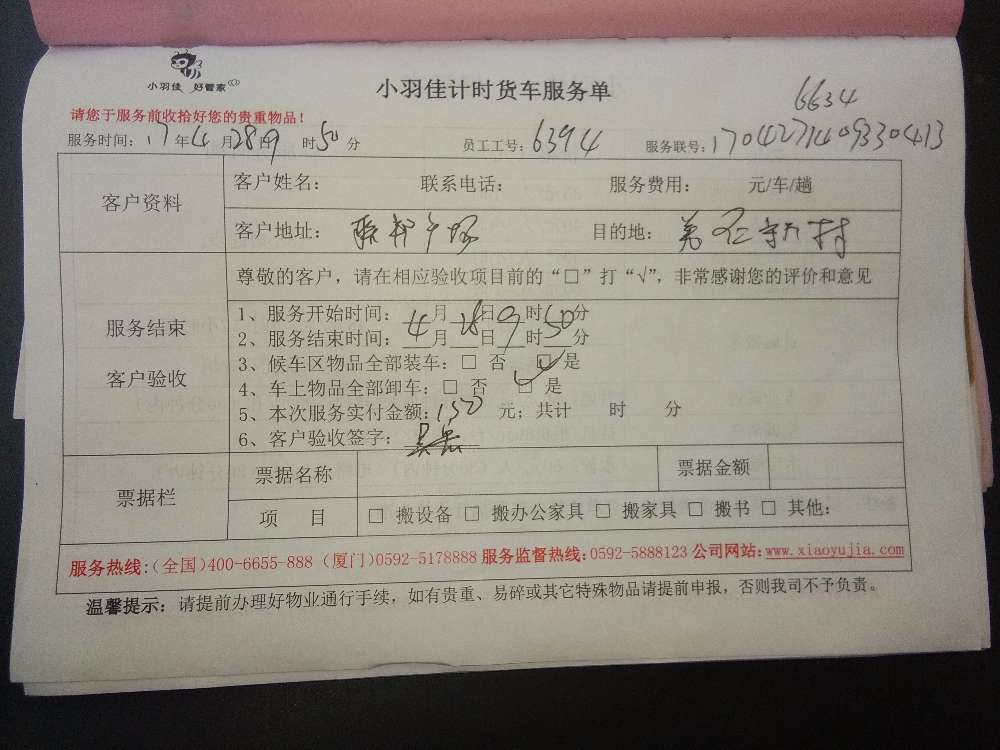 小羽佳 好管家
小羽佳计时货车服务单
6634
请您于服务前收拾好您的贵重物品！
服务时间：17年4月28日9时50分 员工工号：6394 服务联号：1704271409330413
客户资料
客户姓名： 联系电话： 服务费用： 元/车/趟
客户地址： 联邦广场 目的地： 新村
服务结束
客户验收
尊敬的客户，请在相应验收项目前的“□”打“√”，非常感谢您的评价和意见
1、服务开始时间：4月28日9时50分
2、服务结束时间：月 日 时 分
3、候车区物品全部装车：□ 否 ☑ 是
4、车上物品全部卸车：□ 否 ☑ 是
5、本次服务实付金额：150 元；共计 时 分
6、客户验收签字：
票据栏
票据名称 票据金额
项 目 □ 搬设备 □ 搬办公家具 □ 搬家具 □ 搬书 □ 其他：
服务热线：（全国）400-6655-888（厦门）0592-5178888 服务监督热线：0592-5888123 公司网站：www.xiaoyujia.com
温馨提示：请提前办理好物业通行手续，如有贵重、易碎或其它特殊物品请提前申报，否则我司不予负责。